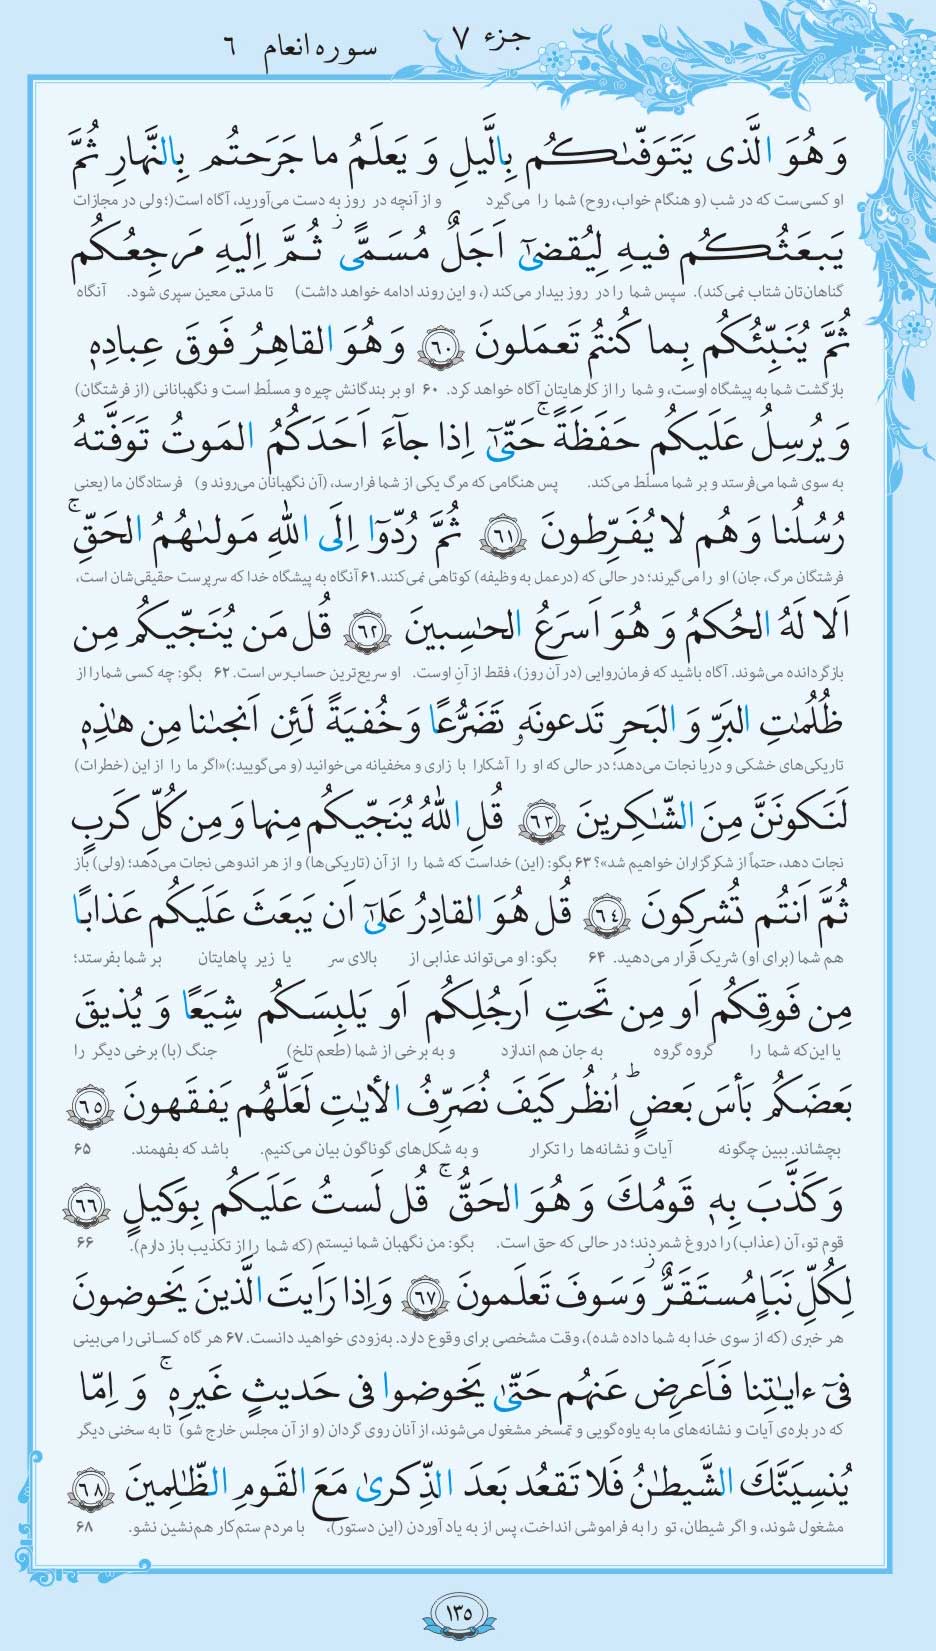 جزء ۷
سوره انعام ۶
وَ هُوَ الَّذی یَتَوَفّىٰکُم بِالَّیلِ وَ یَعلَمُ ما جَرَحتُم بِالنَّهارِ ثُمَّ
او کسی‌ست که در شب (و هنگام خواب، روح) شما را می‌گیرد و از آنچه در روز به دست می‌آورید، آگاه است(؛ ولی در مجازات
یَبعَثُکُم فیهِ لِیُقضىٰٓ اَجَلٌ مُسَمًّى ۖ ثُمَّ اِلَیهِ مَرجِعُکُم
گناهان‌تان شتاب نمی‌کند). سپس شما را در روز بیدار می‌کند (، و این روند ادامه خواهد داشت) تا مدتی معین سپری شود. آنگاه
ثُمَّ یُنَبِّئُکُم بِما کُنتُم تَعمَلونَ ﴿۶۰﴾ وَ هُوَ القاهِرُ فَوقَ عِبادِهٖ
بازگشت شما به پیشگاه اوست، و شما را از کارهایتان آگاه خواهد کرد. ۶۰ او بر بندگانش چیره و مسلّط است و نگهبانانی (از فرشتگان)
وَ یُرسِلُ عَلَیکُم حَفَظَةً ۚ حَتّىٰٓ اِذا جآءَ اَحَدَکُمُ المَوتُ تَوَفَّتهُ
به سوی شما می‌فرستد و بر شما مسلّط می‌کند. پس هنگامی که مرگ یکی از شما فرارسد، (آن نگهبانان می‌روند و) فرستادگان ما (یعنی
رُسُلُنا وَ هُم لا یُفَرِّطونَ ﴿۶۱﴾ ثُمَّ رُدّوٓا اِلَى اللهِ مَولىٰهُمُ الحَقِّ ۚ
فرشتگان مرگ، جان) او را می‌گیرند؛ در حالی که (درعمل به وظیفه) کوتاهی نمی‌کنند. ۶۱ آنگاه به پیشگاه خدا که سرپرست حقیقی‌شان است،
اَلا لَهُ الحُکمُ وَ هُوَ اَسرَعُ الحٰسِبینَ ﴿۶۲﴾ قُل مَن یُنَجّیکُم مِن
بازگردانده می‌شوند. آگاه باشید که فرمان‌روایی (در آن روز)، فقط از آنِ اوست. او سریع‌ترین حساب‌رس است. ۶۲ بگو: چه کسی شما را از
ظُلُمٰتِ البَرِّ وَ البَحرِ تَدعونَهٗ تَضَرُّعًا وَ خُفیَةً لَئِن اَنجىٰنا مِن هٰذِهٖ
تاریکی‌های خشکی و دریا نجات می‌دهد؛ در حالی که او را آشکارا با زاری و مخفیانه می‌خوانید (و می‌گویید:)«اگر ما را از این (خطرات)
لَنَکونَنَّ مِنَ الشّٰکِرینَ ﴿۶۳﴾ قُلِ اللهُ یُنَجّیکُم مِنها وَ مِن کُلِّ کَربٍ
نجات دهد، حتماً از شکرگزاران خواهیم شد»؟ ۶۳ بگو: (این) خداست که شما را از آن (تاریکی‌ها) و از هر اندوهی نجات می‌دهد؛ (ولی) باز
ثُمَّ اَنتُم تُشرِکونَ ﴿۶۴﴾ قُل هُوَ القادِرُ عَلىٰٓ اَن یَبعَثَ عَلَیکُم عَذابًا
هم شما (برای او) شریک قرار می‌دهید. ۶۴ بگو: او می‌تواند عذابی از بالای سر یا زیر پاهایتان بر شما بفرستد؛
مِن فَوقِکُم اَو مِن تَحتِ اَرجُلِکُم اَو یَلبِسَکُم شِیَعًا وَ یُذیقَ
یا این‌که شما را گروه گروه به جان هم اندازد و به برخی از شما (طعم تلخ) جنگ (با) برخی دیگر را
بَعضَکُم بَأسَ بَعضٍ ۗ اُنظُر کَیفَ نُصَرِّفُ الأیٰتِ لَعَلَّهُم یَفقَهونَ ﴿۶۵﴾
بچشاند. ببین چگونه آیات و نشانه‌ها را تکرار و به شکل‌های گوناگون بیان می‌کنیم. باشد که بفهمند. ۶۵
وَ کَذَّبَ بِهٖ قَومُکَ وَ هُوَ الحَقُّ ۚ قُل لَستُ عَلَیکُم بِوَکیلٍ ﴿۶۶﴾
قوم تو، آن (عذاب) را دروغ شمردند؛ در حالی که حق است. بگو: من نگهبان شما نیستم (که شما را از تکذیب باز دارم). ۶۶
لِکُلِّ نَبَاٍ مُستَقَرٌّ ۚ وَ سَوفَ تَعلَمونَ ﴿۶۷﴾ وَ اِذا رَاَیتَ الَّذینَ یَخوضونَ
هر خبری (که از سوی خدا به شما داده شده)، وقت مشخصی برای وقوع دارد. به‌زودی خواهید دانست. ۶۷ هر گاه کسانی را می‌بینی
فیٓ ءایٰتِنا فَاَعرِض عَنهُم حَتّىٰ یَخوضوا فی حَدیثٍ غَیرِهٖ ۚ وَ اِمّا
که درباره‌ی آیات و نشانه‌های ما به یاوه‌گویی و تمسخر مشغول می‌شوند، از آنان روی گردان (و از آن مجلس خارج شو) تا به سخنی دیگر
یُنسِیَنَّکَ الشَّیطٰنُ فَلا تَقعُد بَعدَ الذِّکرىٰ مَعَ القَومِ الظّٰلِمینَ ﴿۶۸﴾
مشغول شوند، و اگر شیطان، تو را به فراموشی انداخت، پس از به یاد آوردن (این دستور)، با مردم ستم‌کار هم‌نشین نشو. ۶۸
۱۳۵